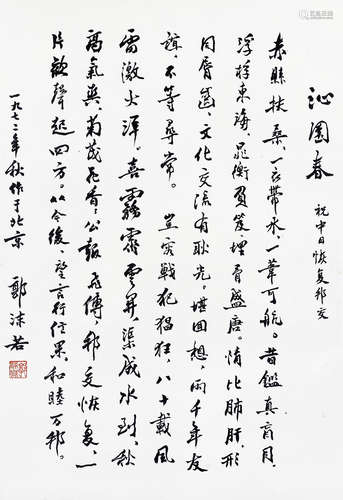 沁園春
祝中日恢复邦交
赤縣扶桑，一衣帶水，一葦可航。昔鑑真盲目，
浮桴東海，晁衡負笈，埋骨盛唐。情比肺肝，形
同脣齒，文化交流有耿光。堪回想，兩千年友
誼，不等尋常。豈容戰犯猖狂，八十載風
雷激大洋。喜霧霽雲開，渠成水到，秋
高氣爽，菊茂花香。公報飛傳，邦交恢复，一
片歡聲起四方。从今後，望言行信果，和睦万邦。
一九七二年秋作于北京
郭沫若